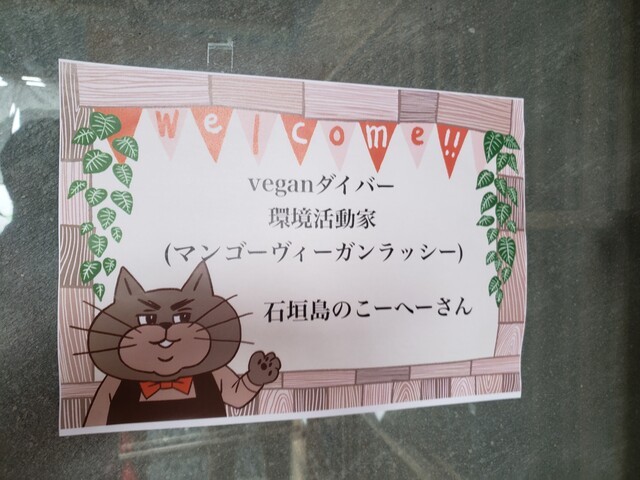 Welcome!!
veganダイバー
環境活動家
(マンゴーヴィーガンラッシー)
石垣島のこーへーさん